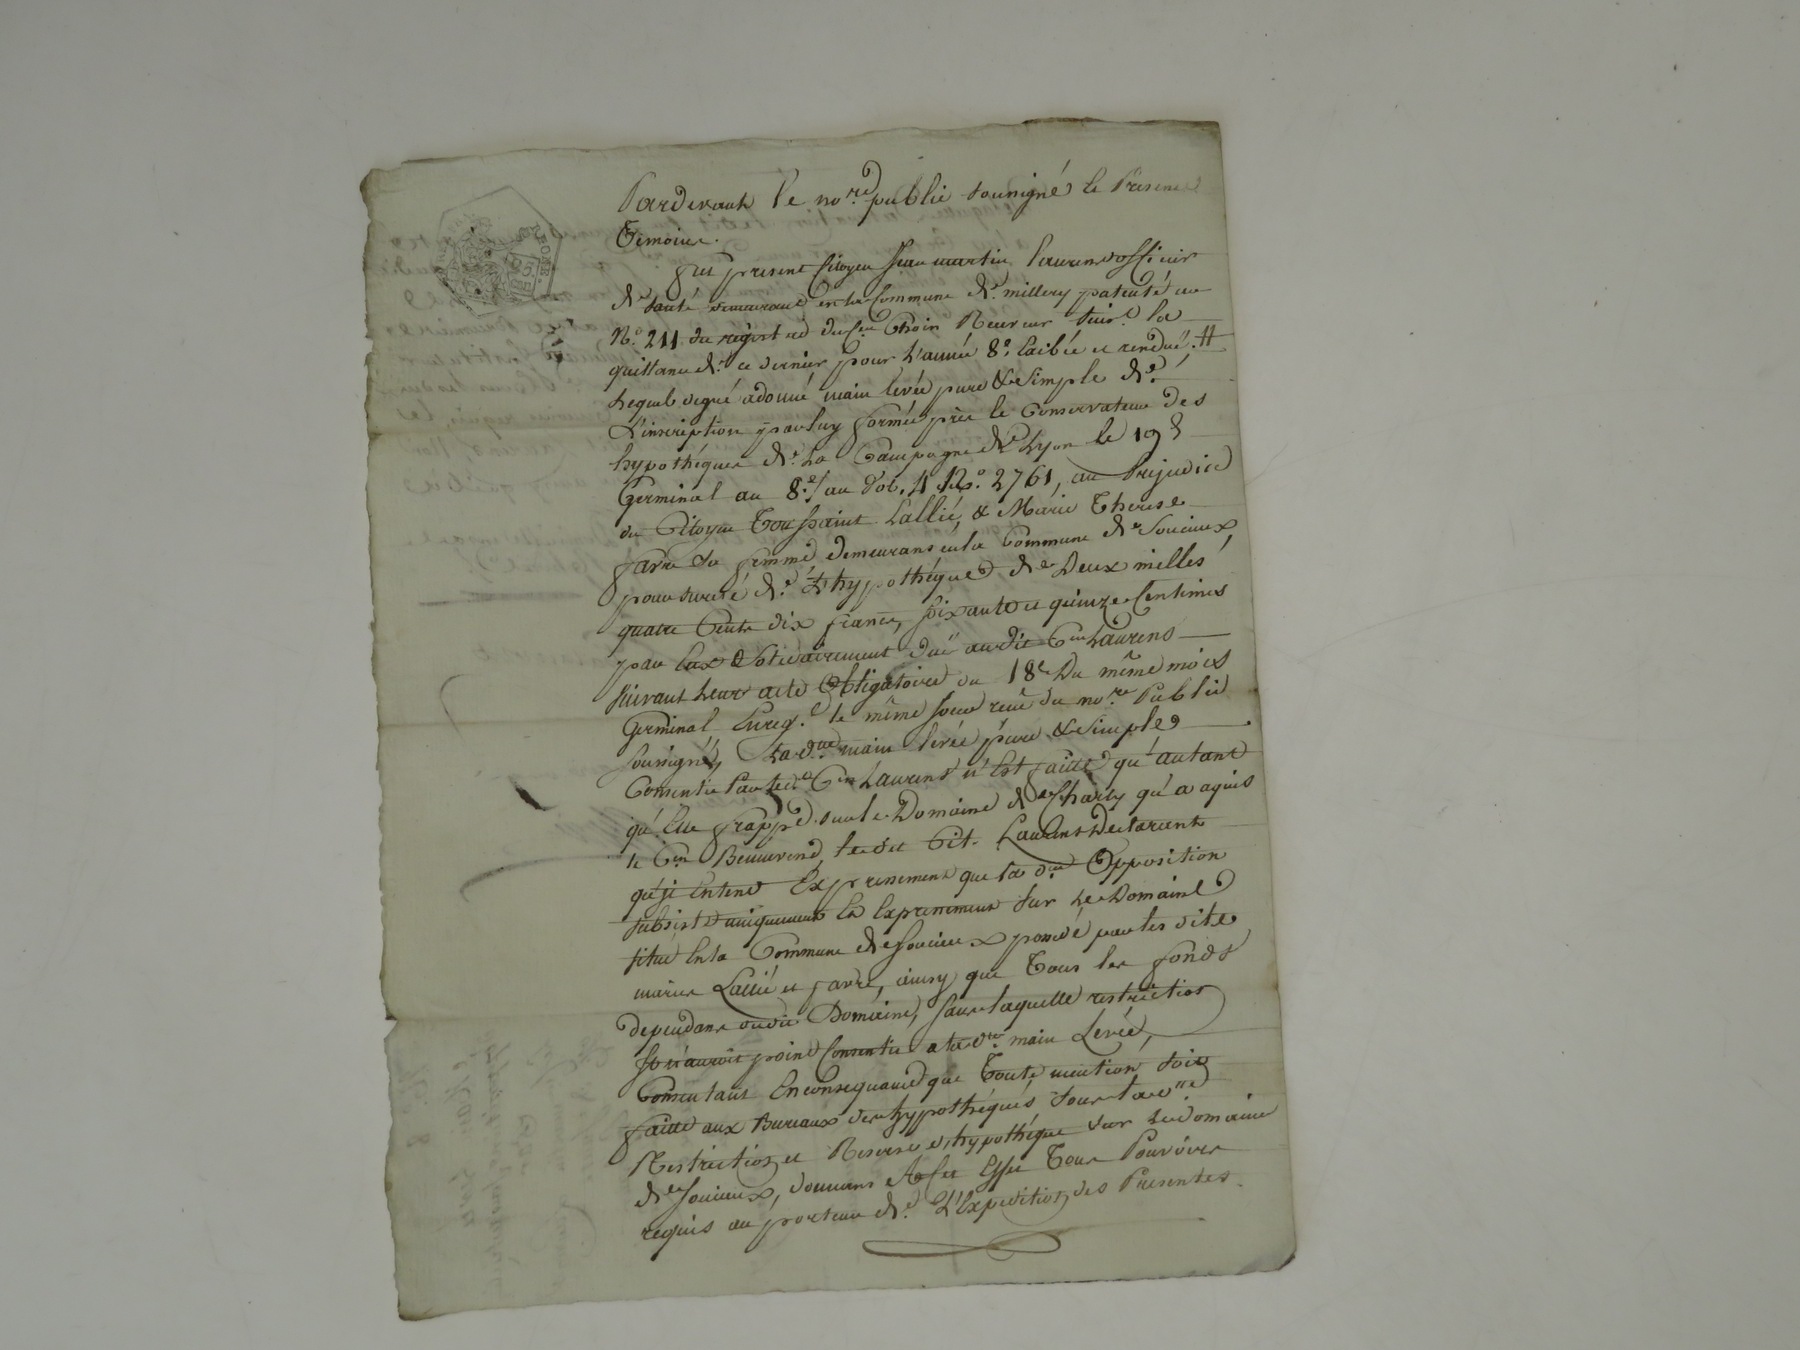 Pardevant le no.re public soussigné le Presens
Temoins.
fut present Citoyen Jean martin Laurens officier
de. santé demeurant en la Commune de. millery patenté au
N.o 211 du registre du C.en Thoin Receveur suiv.t la
quittance de. ce dernier pour L'année 8.e Exibée et rendue. #
Lequel degré a donné main levée pure & simple de.
L'inscription par luy formée près le Conservateur des
hypothéques de. La Campagne de Lyon le 19
Germinal an 8.e au vol. 4 N.o 2761, au Prejudice
du Citoyen Toussaint Lallié, & Marie Therese
favre sa femme demeurans en la Commune de Soucieux,
pour sureté de. L'hypothéque de Deux milles
quatre Cents dix francs, soixante et quinze Centimes
par Eux Solidairement dûe audit C.en Laurens
suivant Leur acte Obligatoire du 18 e Du même mois
Germinal Enreg.é le même jour reçu du no.re Public
soussigné, La d.te main levée pure & simple
Consentie Par led.t C.en Laurens n'Est faitte qu'autant
qu'Elle frappe sur le Domaine de Charly qu'a aquis
le C.en Beauvend, le dit Cit. Laurens Declarant
qu'il Entend Expressement que la d.te Opposition
subsiste uniquement Et Expressement sur Le Domaine
situé En la Commune de Soucieux possedé par les dits
mariés Lallié et favre, ainsy que Tous les fonds
dependans dudit Domaine, sans laquelle restriction
il n'auroit point Consentie a la d.te main Levée,
Consentant En consequance que Toute mention soit
faitte aux Bureaux des hypothéqués sous la d.te
Restriction et Reserve d'hypothéque sur Le domaine
de Soucieux, donnans A Cet Effet Tous Pouvoirs
requis au porteur de. L'Expedition des Presentes.